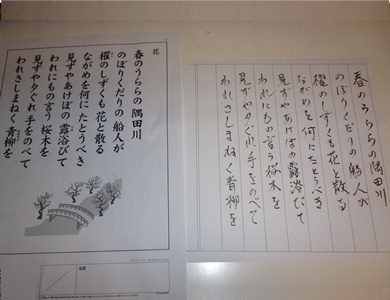 花
春のうららの隅田川
のぼりくだりの船人が
櫂のしずくも花と散る
ながめを何にたとうべき
見ずやあけぼの露浴びて
われにもの言う桜木を
見ずや夕ぐれ手をのべて
われさしまねく青柳を
春のうららの隅田川
のぼりくだりの船人が
櫂のしずくも花と散る
ながめを何にたとうべき
見ずやあけぼの露浴びて
われにもの言う桜木を
見ずや夕ぐれ手をのべて
われさしまねく青柳を